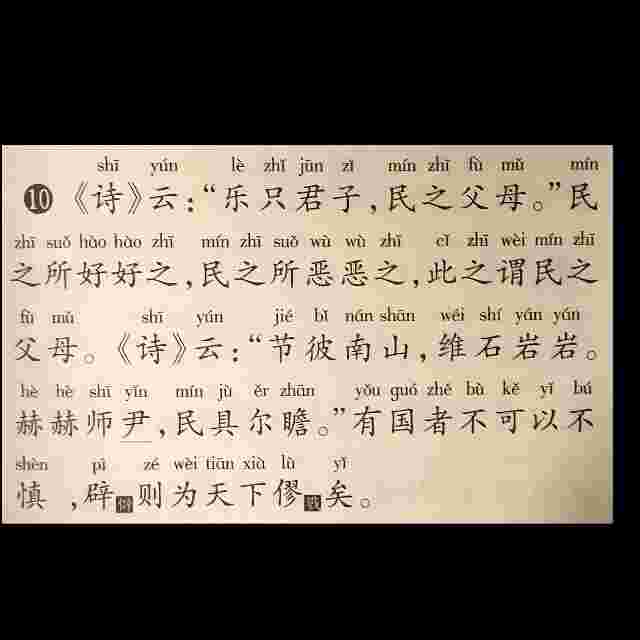 shī yún lè zhǐ jūn zǐ mín zhī fù mǔ mín
10 《诗》云：“乐只君子，民之父母。”民
zhī suǒ hào hào zhī mín zhī suǒ wù wù zhī cǐ zhī wèi mín zhī
之所好好之，民之所恶恶之，此之谓民之
fù mǔ shī yún jié bǐ nán shān wéi shí yán yán
父母。《诗》云：“节彼南山，维石岩岩。
hè hè shī yǐn mín jù ěr zhān yǒu guó zhě bù kě yǐ bú
赫赫师尹，民具尔瞻。”有国者不可以不
shèn pì zé wèi tiān xià lù yǐ
慎，辟则为天下僇矣。